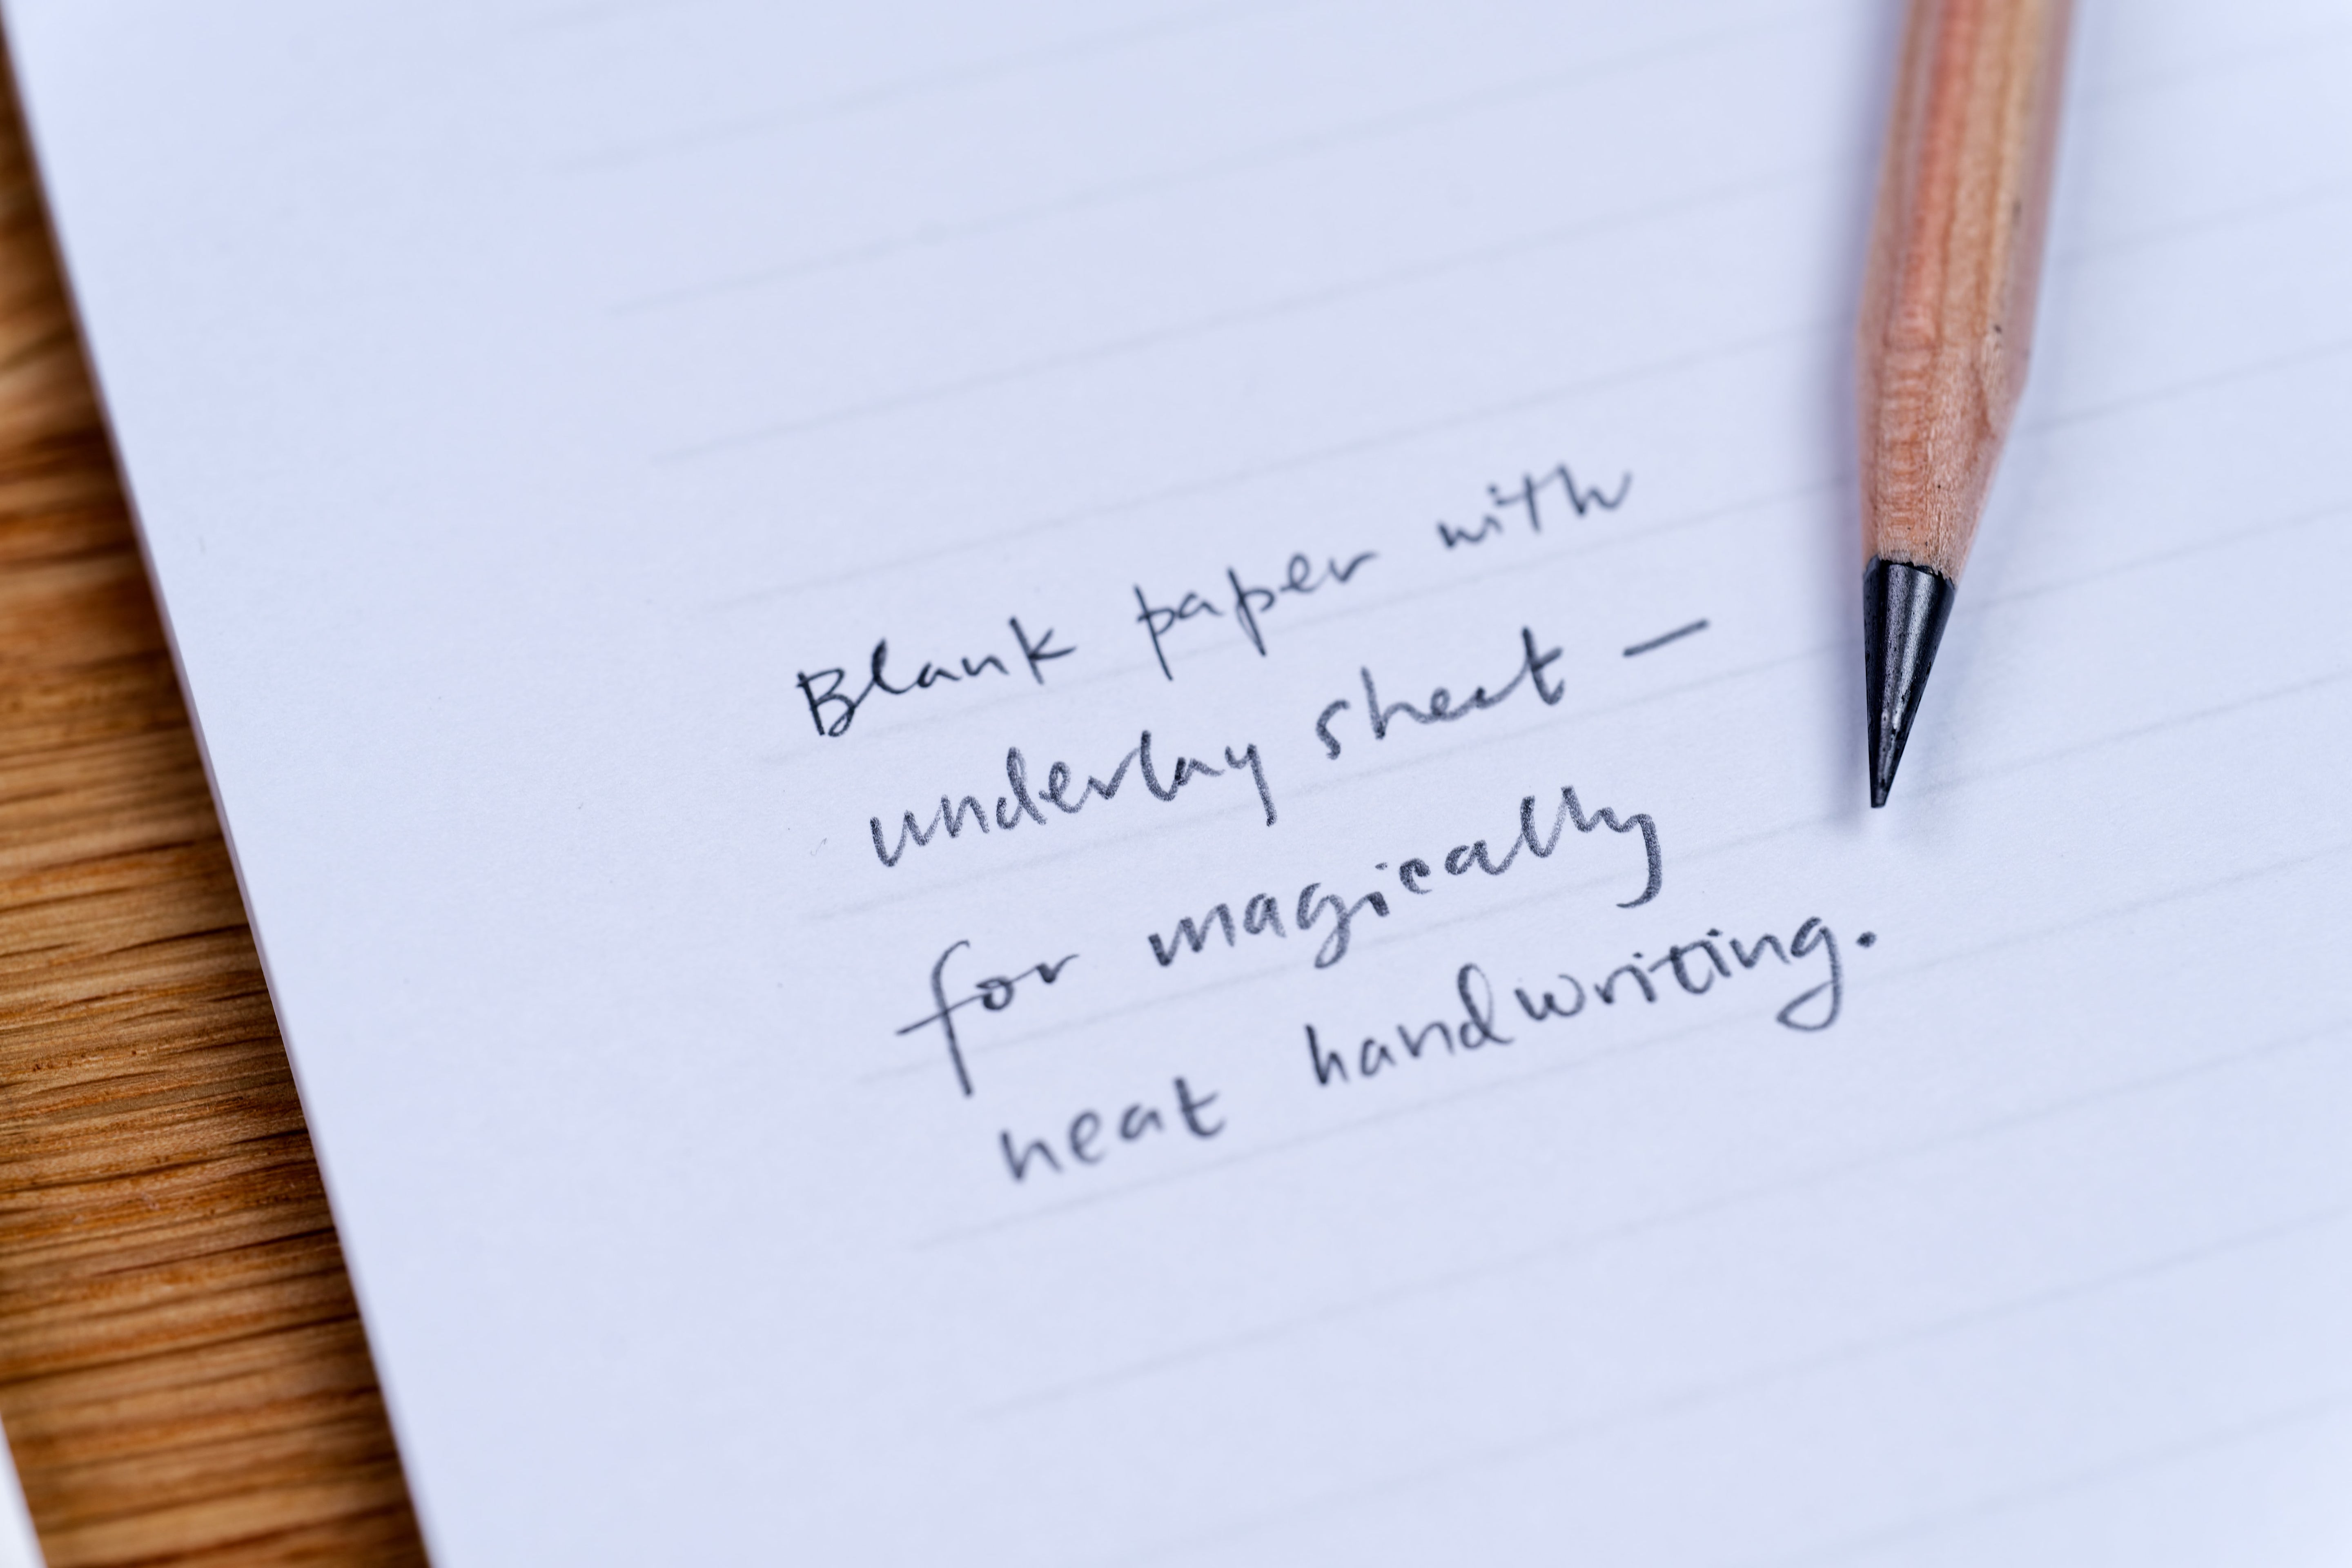 Blank paper with
underlay sheet —
for magically
neat handwriting.